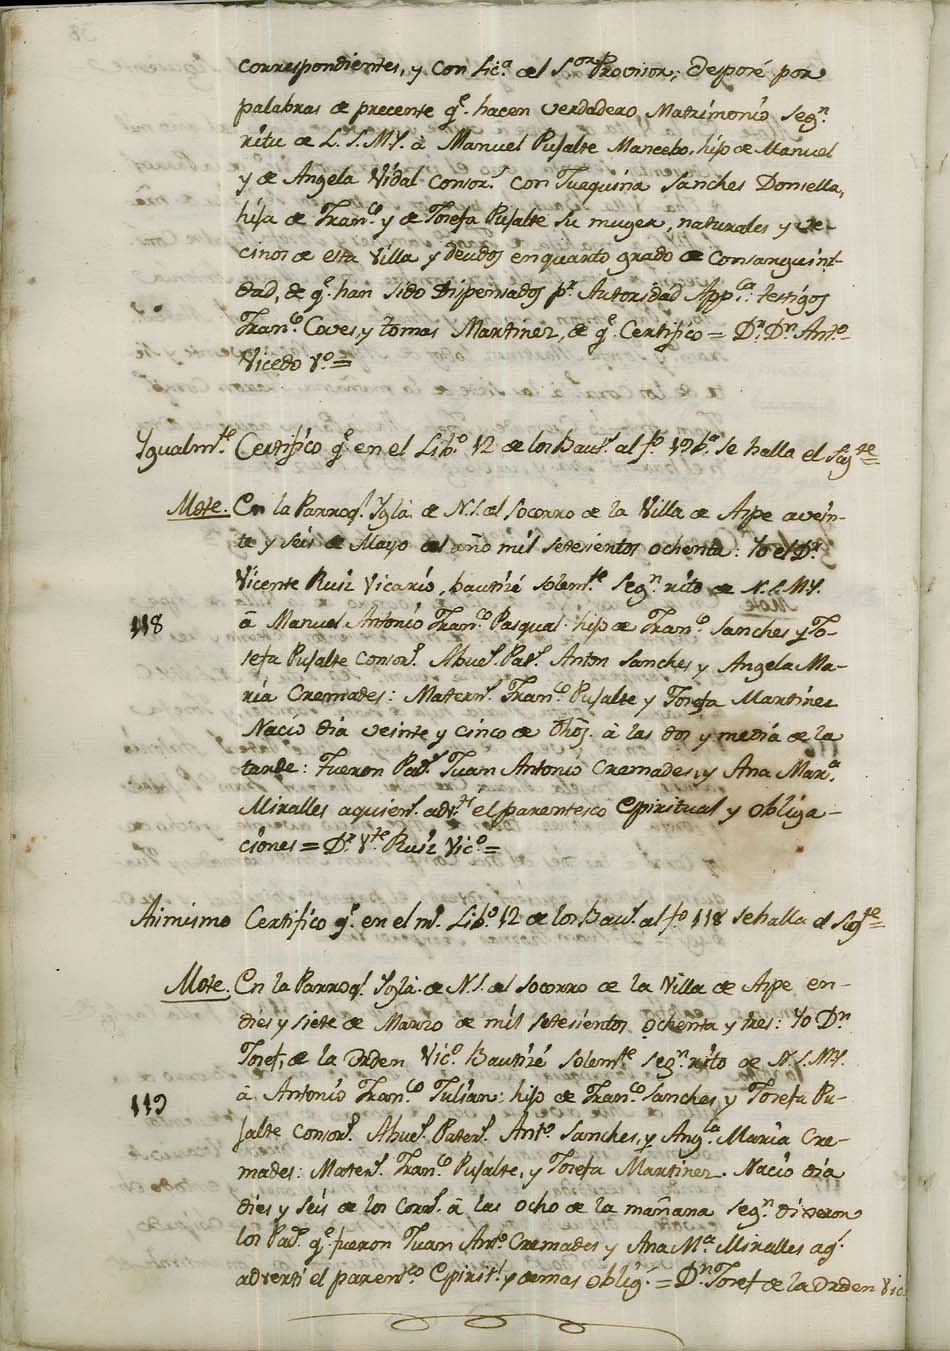 correspondientes, y con Lic.ª del S.or Provisor; desposé por
palabras de precente q.e hacen verdadero Matrimonio seg.n
ritu de L. S. M. Y. à Manuel Pujalte Mancebo, hijo de Manuel
y de Angela Vidal Consor.s con Juaquina Sanches Donsella,
hija de Fran.co y de Josefa Pujalte su muger, naturales y ve-
cinos de esta Villa y deudos en quarto grado de Consanguini-
dad, de q.e han sido dispensados p.r Autoridad App.ca: testigos
Fran.co Caves, y tomas Martines, de q.e Certifico = D.r D.n Ant.o
Vicedo V.o =
Ygualm.te Certifico q.e en el Lib.o 12 de los Baut.s al f.o 19 b.a se halla el sig.te =
Mose. En la Parroq.l Yglã. de N. S. del Socorro de la Villa de Aspe a vein-
te y seis de Mayo del año mil setesientos ochenta: Yo el D.r
Vicente Ruiz Vicario, bautizé solem.te seg.n rito de N. S. M. Y.
118
â Manuel Antonio Fran.co Pasqual hijo de Fran.co Sanches y Jo-
sefa Pujalte consor.s Abue.s Pat.s Anton Sanches y Angela Ma-
ria Cremades: Matern.s Fran.co Pujalte y Josefa Martines
Nacio dia veinte y cinco de dhõs. à las dos y media de la
tarde: Fueron Pad.s Juan Antonio Cremades, y Ana Mar.a
Miralles aquien.s adv.tí el parentesco Espiritual y obliga-
ciones = D.r V.te Ruiz Vic.o =
Asimismo Certifico q.e en el m.o Lib.o 12 de los Bau.s al f.o 118 se halla el sig.te =
Mose. En la Parroq.l Yglã. de N. S. del Socorro de la Villa de Aspe en
dies y siete de Marzo de mil setesientos ochenta y tres: Yo D.n
Josef, de la Orden Vic.o Bautizé solem.te seg.n rito de N. S. M. Y.
119
â Antonio Fran.co Julian: hijo de Fran.co Sanches, y Josefa Pu-
jalte consor.s Abue.s Pater.s Ant.o Sanches, y Ang.la Maria Cre-
mades: Mater.s Fran.co Pujalte, y Josefa Martines. Nacio dia
dies y seis de los corr.s â las ocho de la mañana seg.n dixeron
los Pad.s q.e fueron Juan Ant.o Cremades y Ana M.a Miralles aq.s
advertí el parent.co Espirit.l y demas oblig.s = D.n Josef de la Orden Vic.